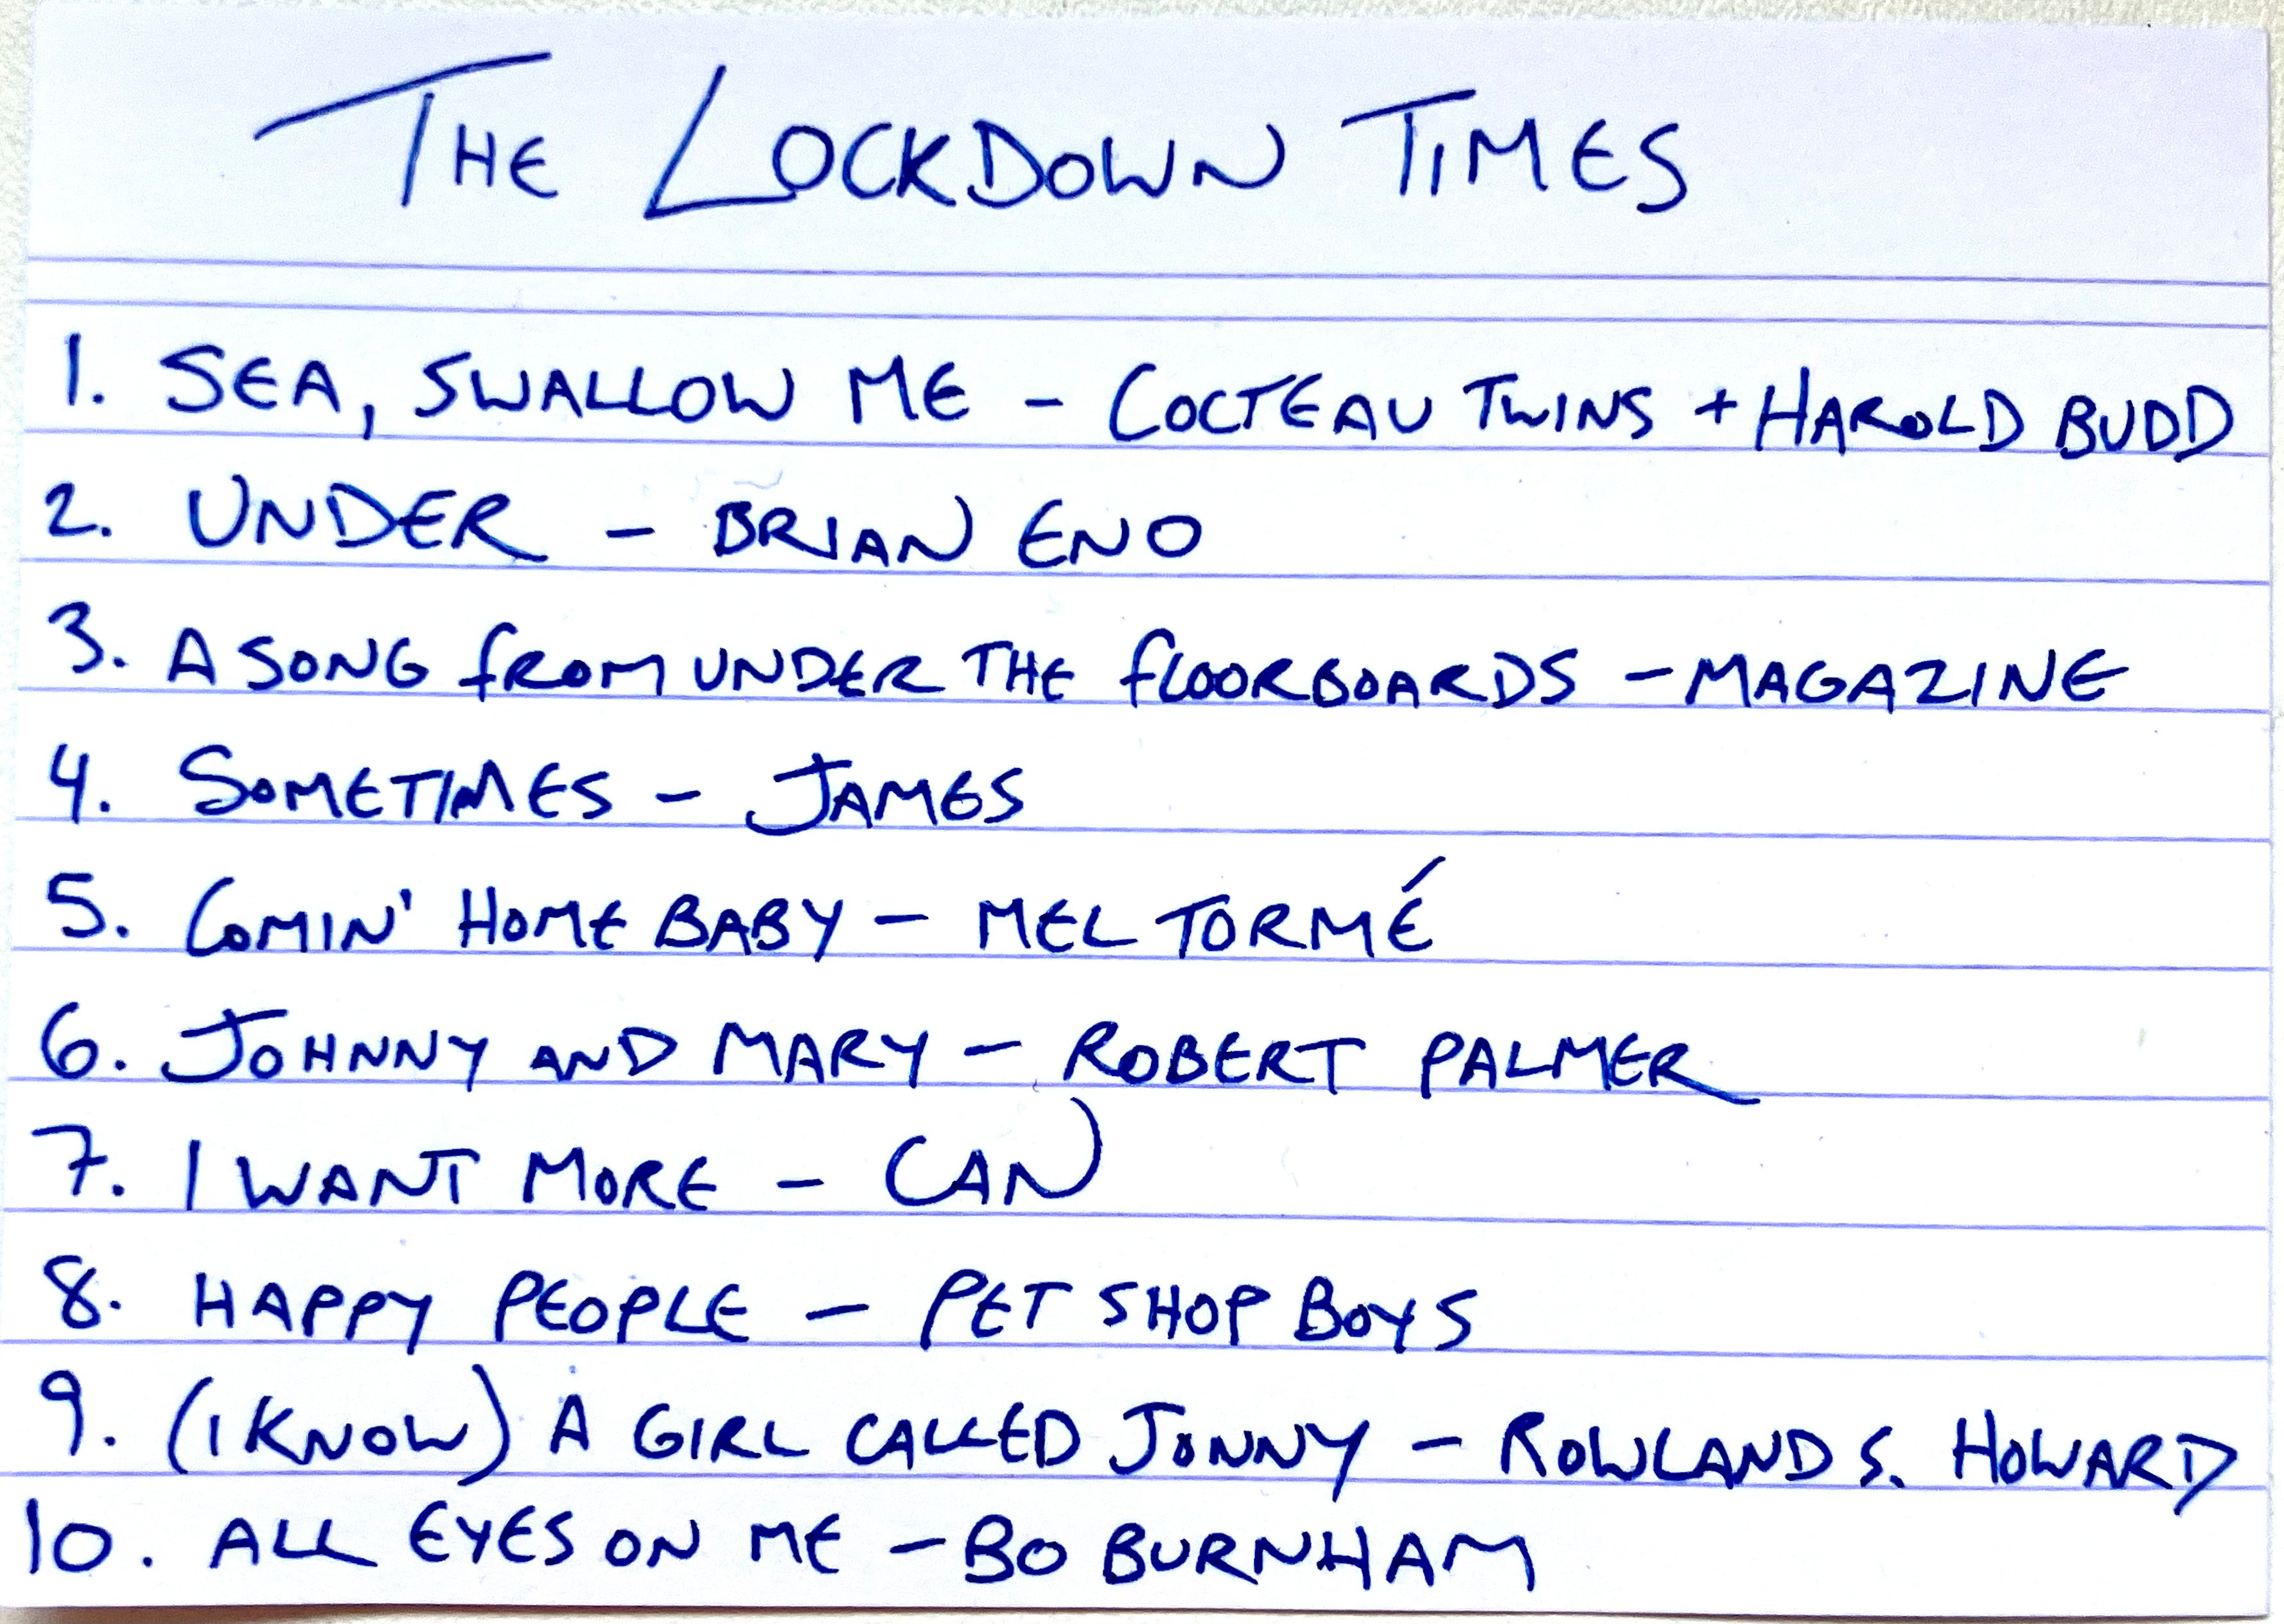 THE LOCKDOWN TIMES
1. SEA, SWALLOW ME - COCTEAU TWINS + HAROLD BUDD
2. UNDER - BRIAN ENO
3. A SONG FROM UNDER THE FLOORBOARDS - MAGAZINE
4. SOMETIMES - JAMES
5. COMIN' HOME BABY - MEL TORMÉ
6. JOHNNY AND MARY - ROBERT PALMER
7. I WANT MORE - CAN
8. HAPPY PEOPLE - PET SHOP BOYS
9. (I KNOW) A GIRL CALLED JONNY - ROWLAND S. HOWARD
10. ALL EYES ON ME - BO BURNHAM